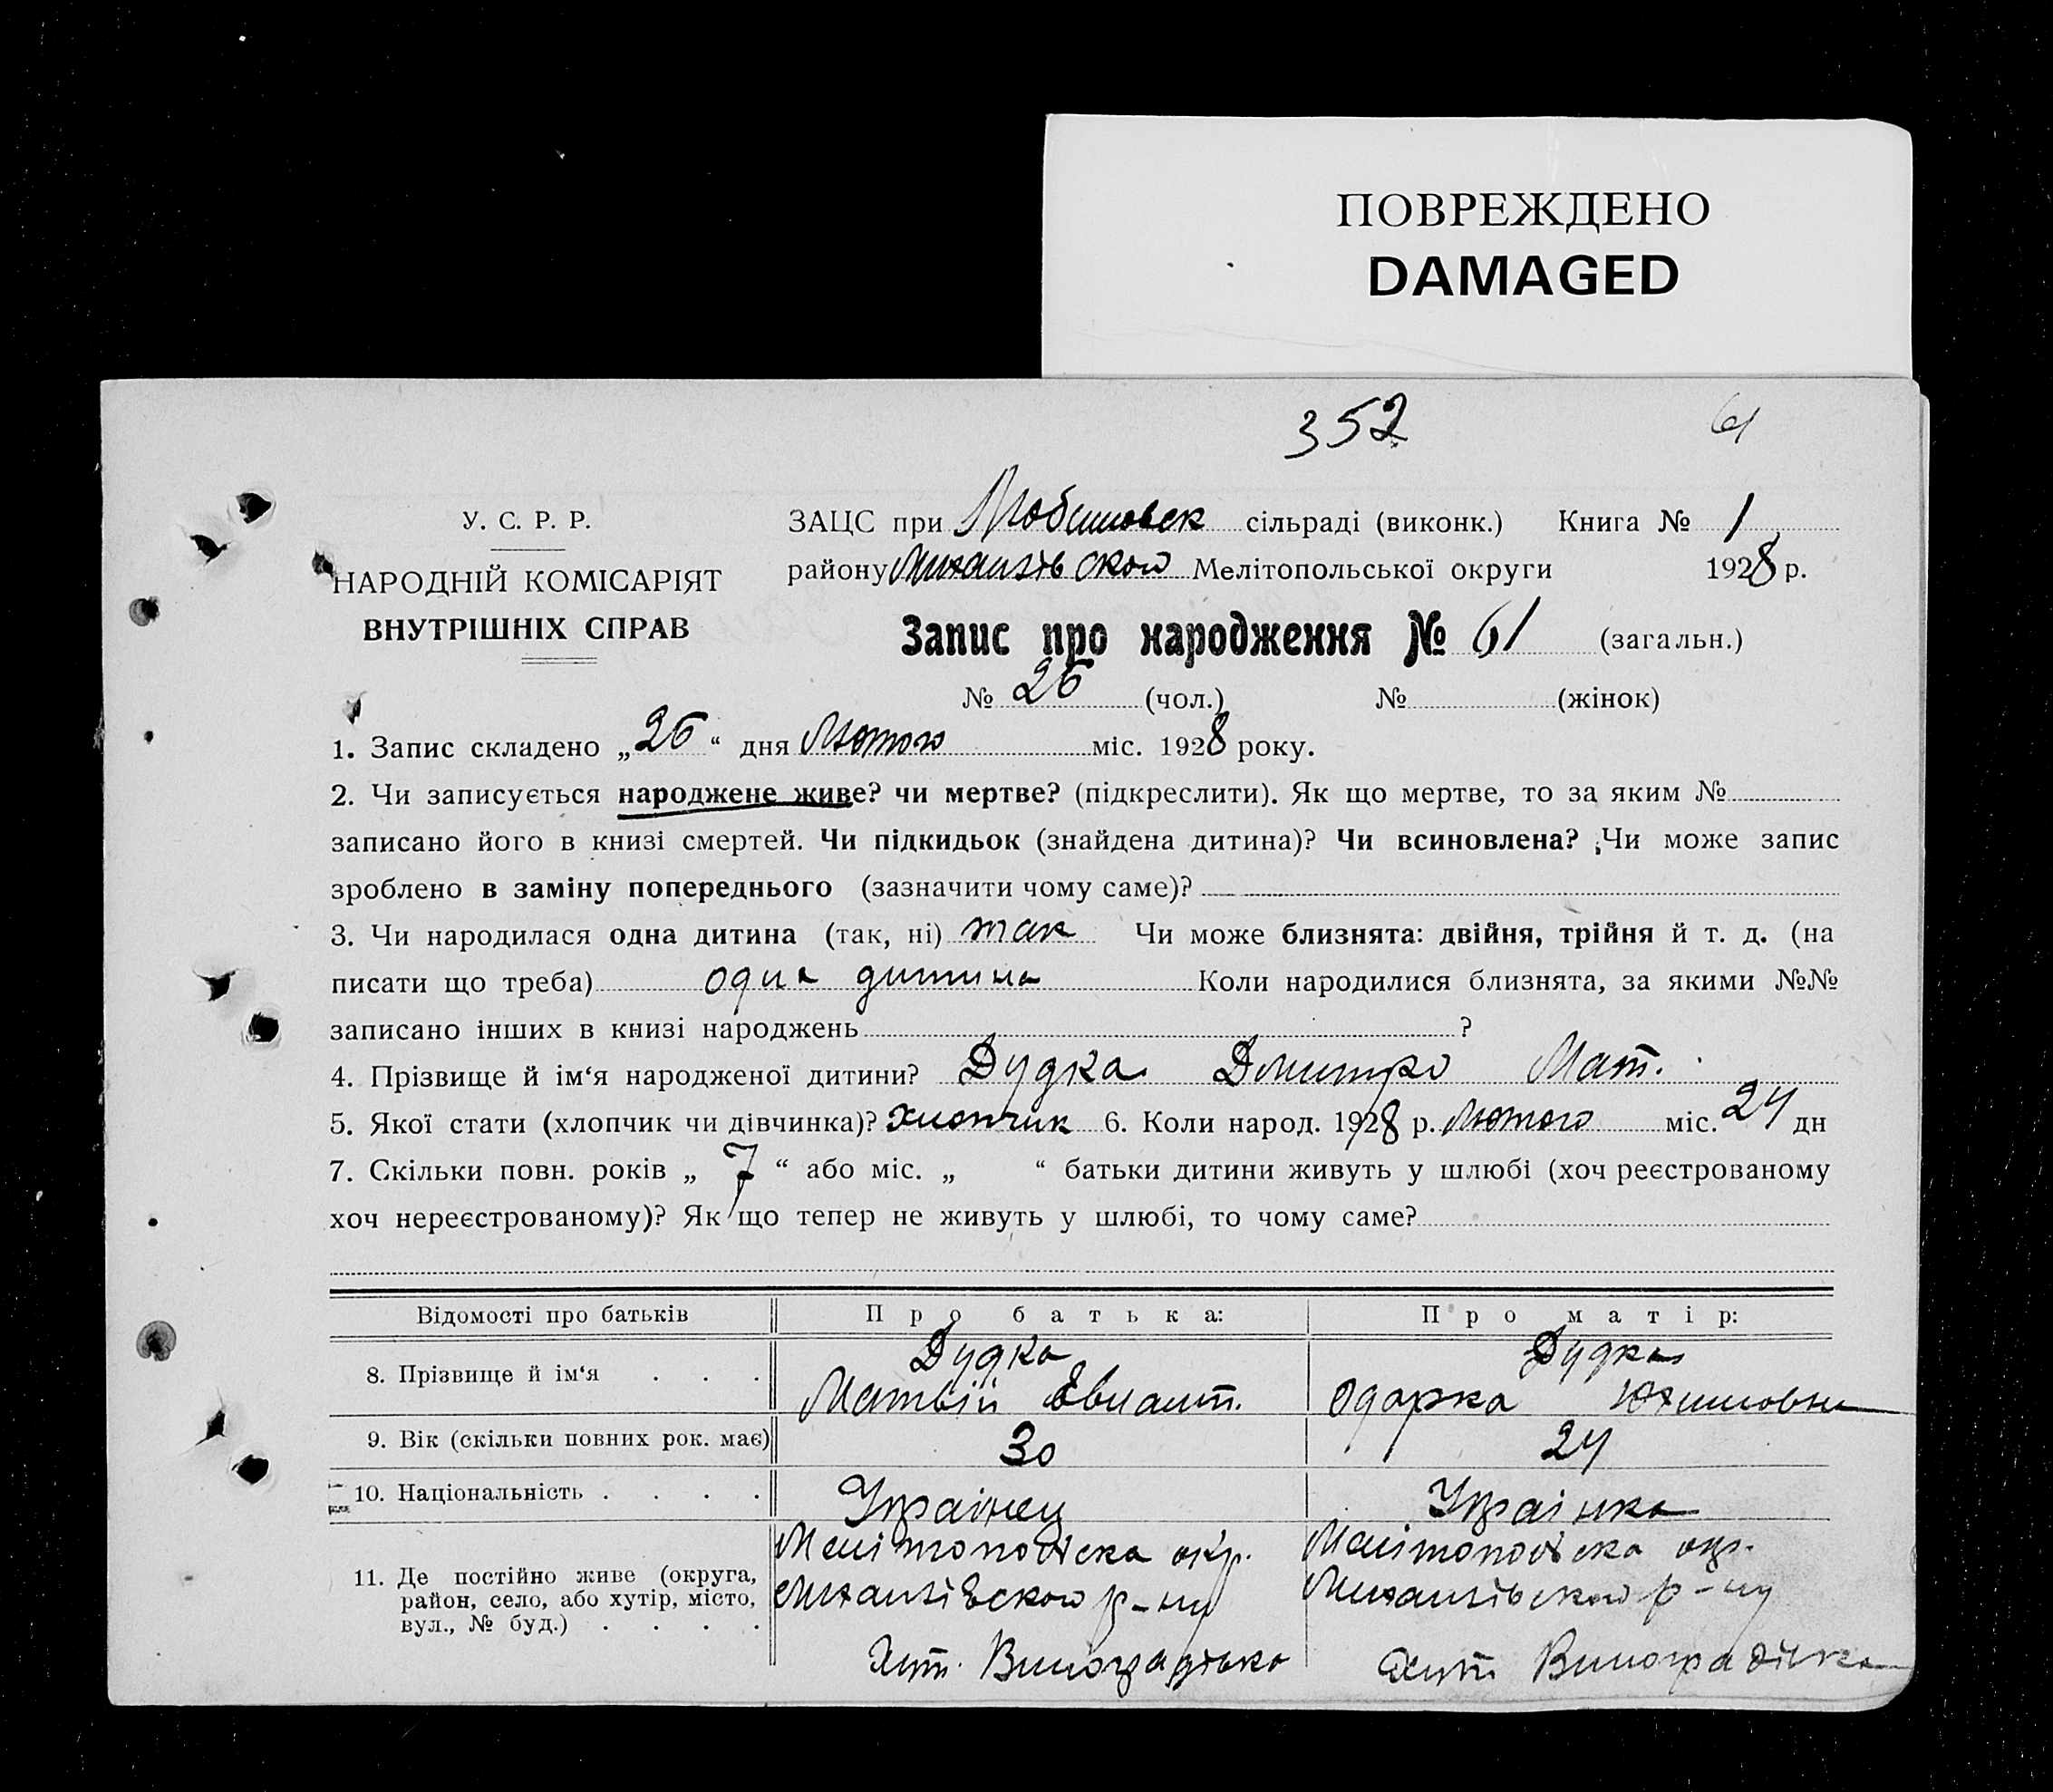 ПОВРЕЖДЕНО
DAMAGED
352 61
У. С. Р. Р.
НАРОДНІЙ КОМІСАРІЯТ
ВНУТРІШНІХ СПРАВ
ЗАЦС при Любимовск сільраді (виконк.) Книга № 1
району Михайлівского Мелітопольської округи 1928 р.
Запис про народження № 61 (загальн.)
№ 26 (чол.) № (жінок)
1. Запис складено „26“ дня Лютого міс. 1928 року.
2. Чи записується народжене живе? чи мертве? (підкреслити). Як що мертве, то за яким №
записано його в книзі смертей. Чи підкидьок (знайдена дитина)? Чи всиновлена? Чи може запис
зроблено в заміну попереднього (зазначити чому саме)?
3. Чи народилася одна дитина (так, ні) так Чи може близнята: двійня, трійня й т. д. (на
писати що треба) одна дитина Коли народилися близнята, за якими №№
записано інших в книзі народжень ?
4. Прізвище й ім‘я народженої дитини? Дудка Дмитро Мат.
5. Якої стати (хлопчик чи дівчинка)? хлопчик 6. Коли народ. 1928 р. Лютого міс. 24 дн
7. Скільки повн. років „ 7 “ або міс. „ “ батьки дитини живуть у шлюбі (хоч реєстрованому
хоч нереєстрованому)? Як що тепер не живуть у шлюбі, то чому саме?
Відомості про батьків Про батька: Про матір:
8. Прізвище й ім‘я . . . Дудка Матвій Евламп. Дудка Одарка Юхимовна
9. Вік (скільки повних рок. має) 30 24
10. Національність . . . . Українец Українка
11. Де постійно живе (округа,
район, село, або хутір, місто,
вул., № буд.) . . . .
Мелітопольска окр. Мелітопольска окр.
Михайлівского р-ну Михайлівского р-ну
Хут. Виноградівка Хут. Виноградівка